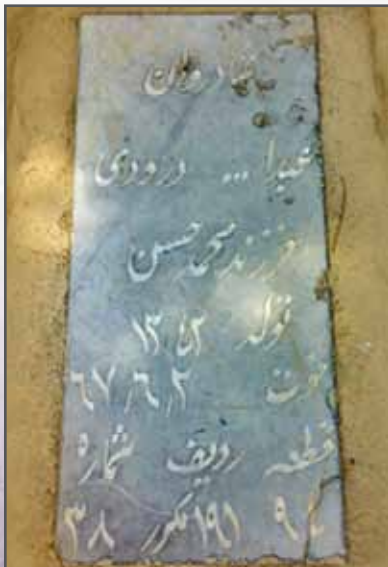 شادروان
عبدا... درودی
فرزند محمدحسین
تولد ۱۳۴۲
فوت ۶۷٫۶٫۲
قطعه ردیف شماره
۱۹۱ مکرر ۳۸